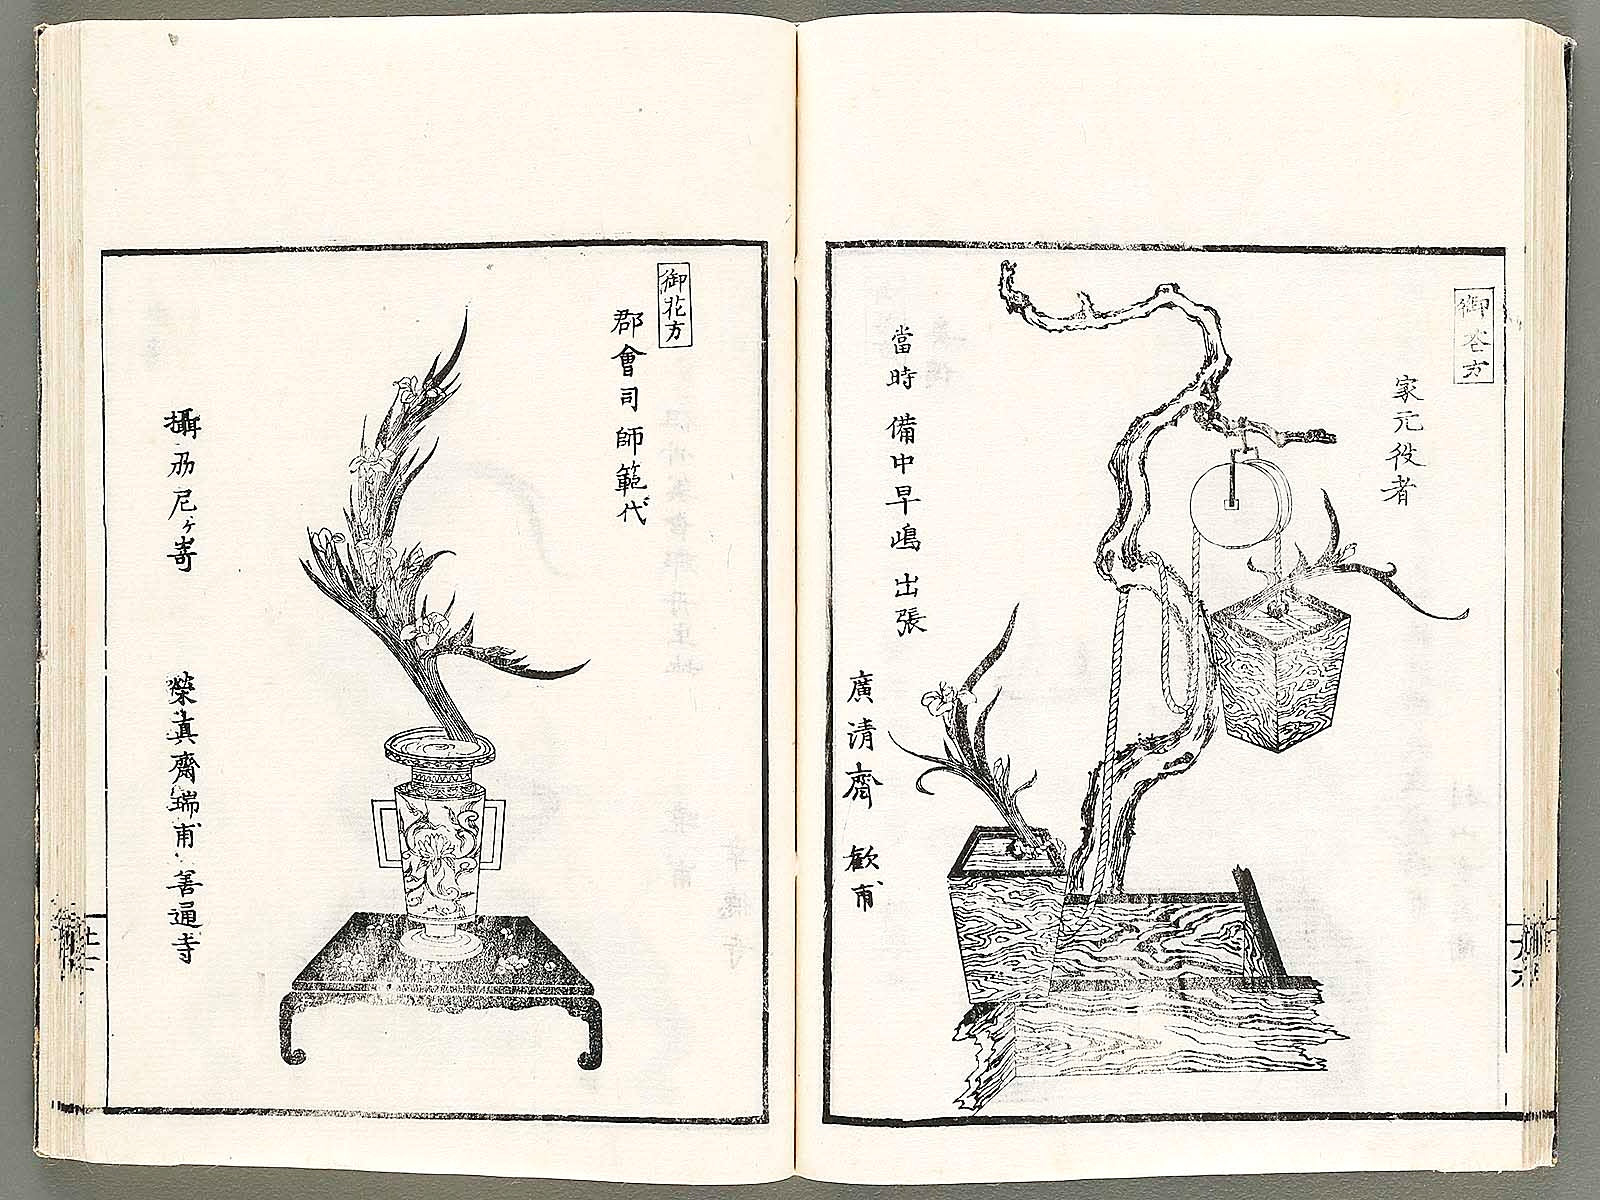 御花方
家元役者
當時 備中早嶋 出張
廣清齋 歓甫
御花方
郡會司師範代
攝刕尼ヶ﨑
榮眞齋瑞甫 善通寺